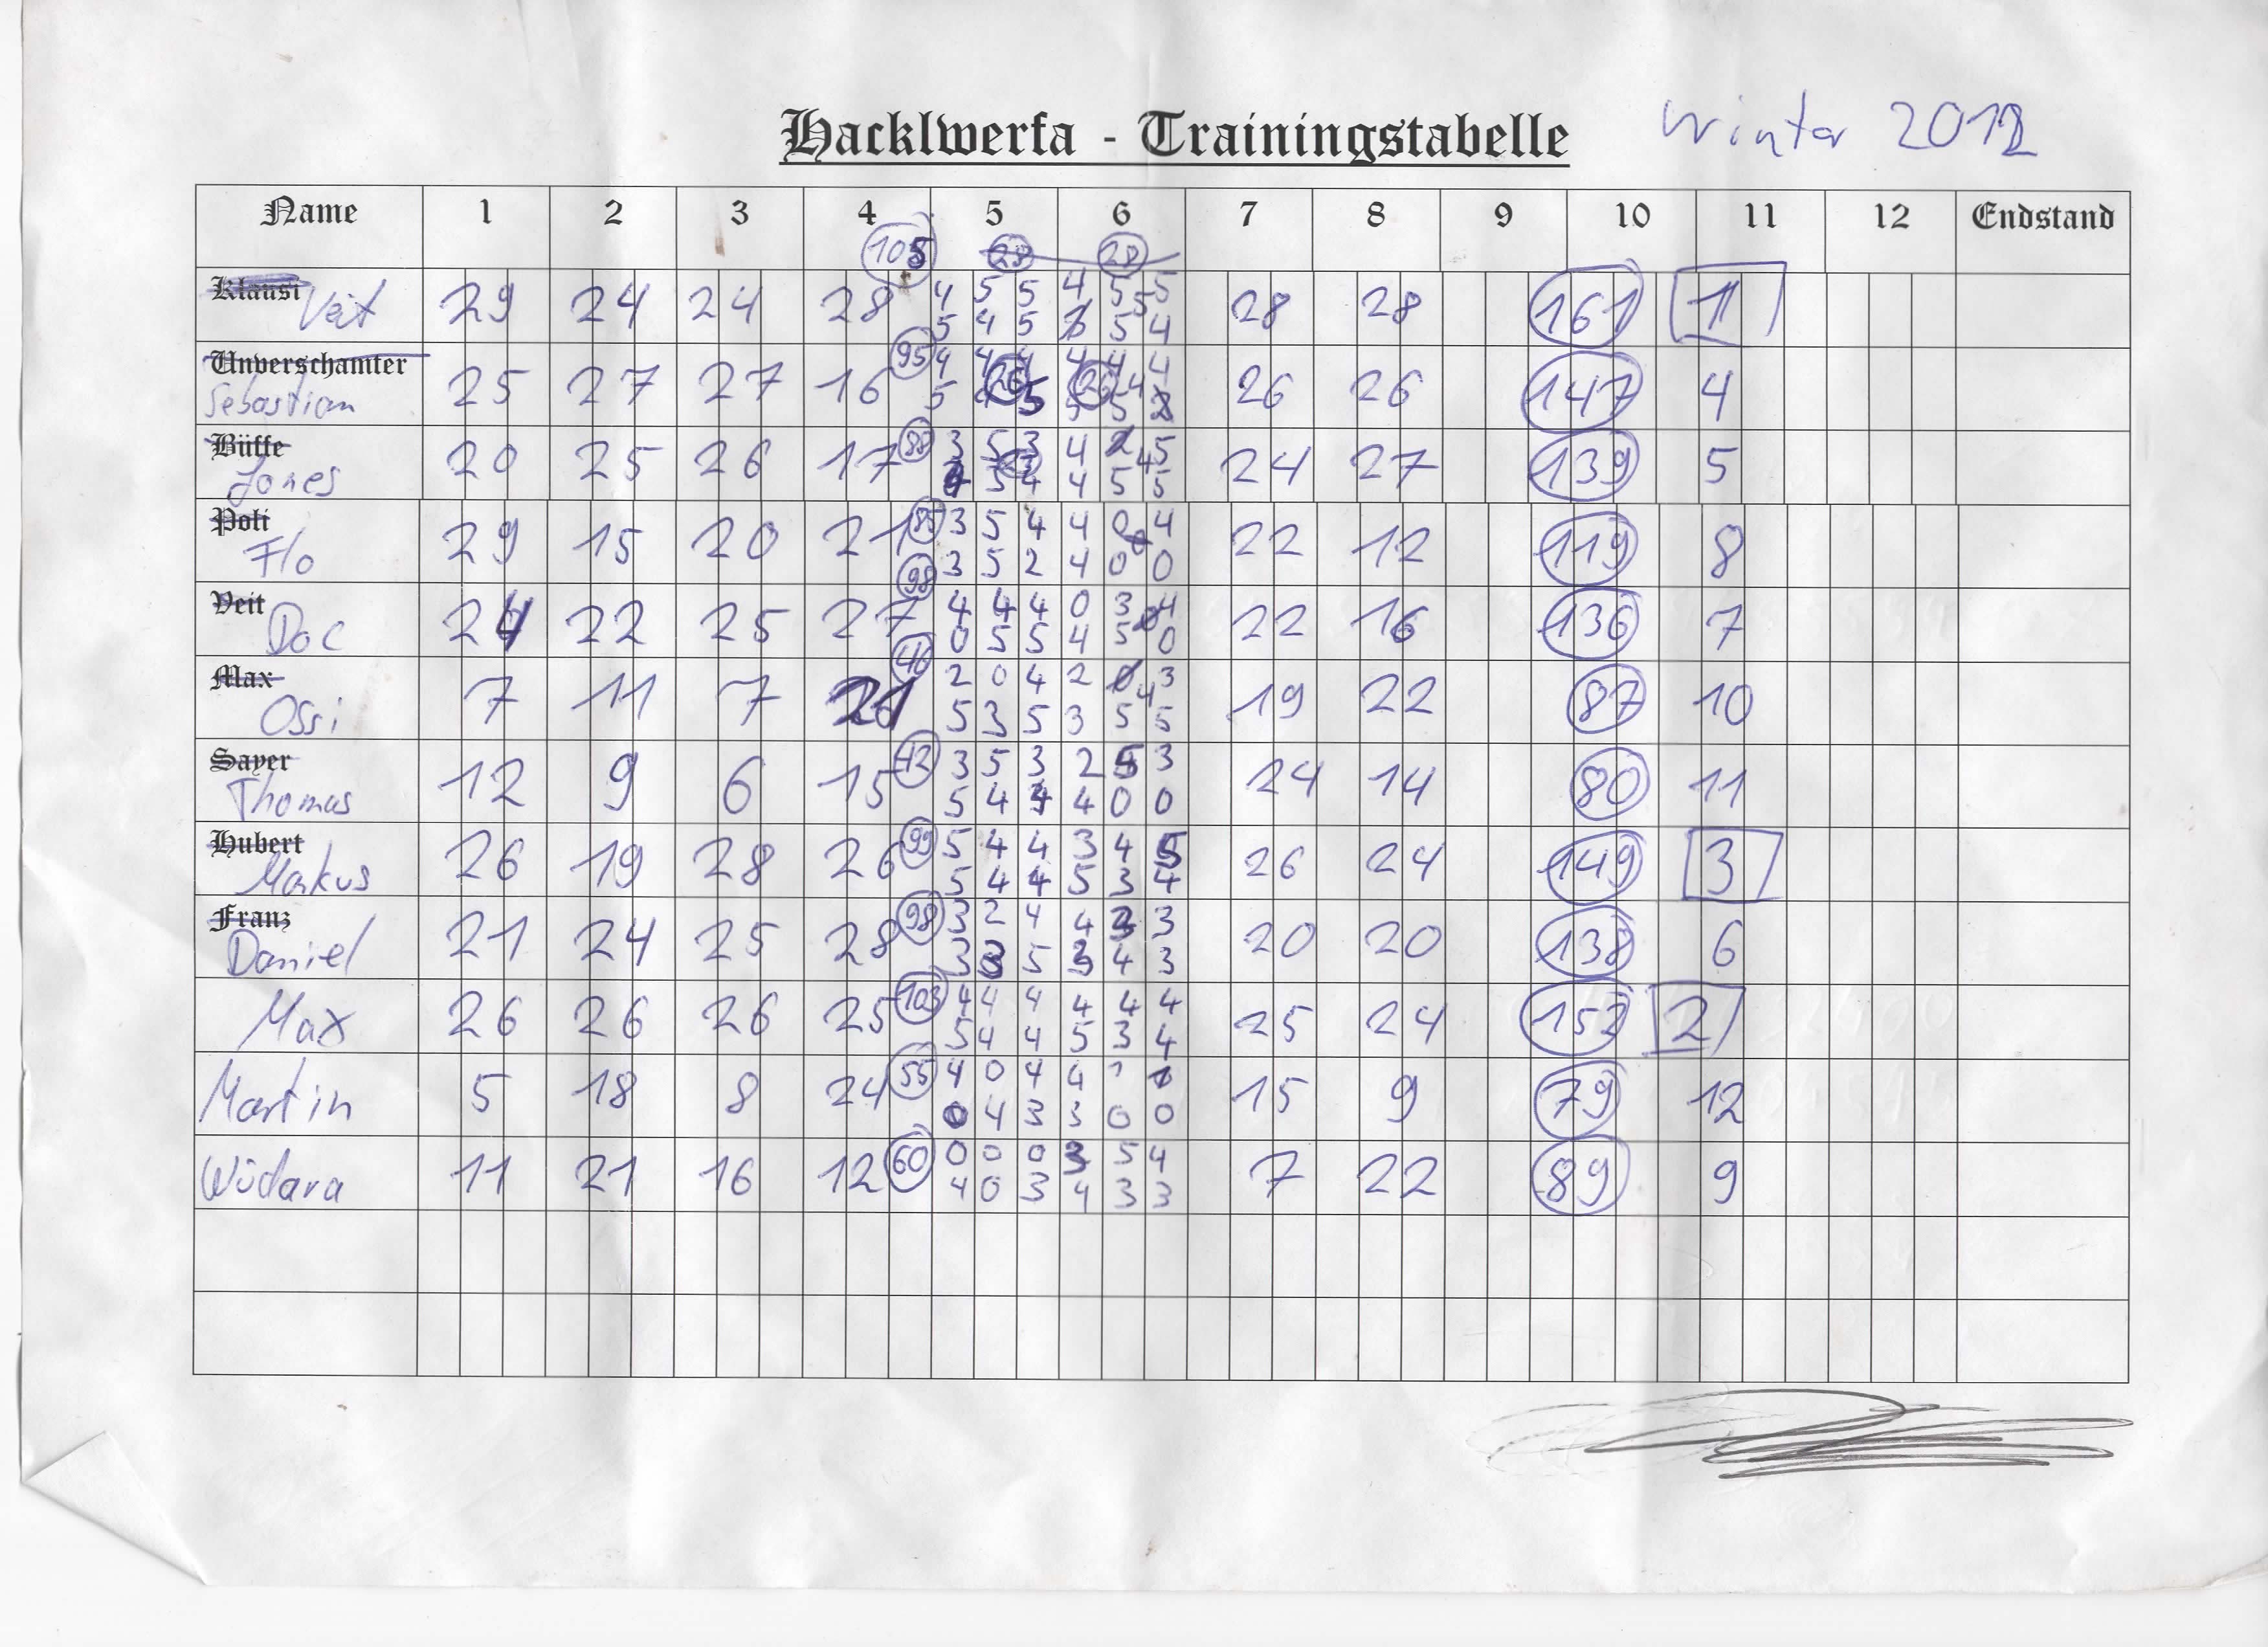 Hacklwerfa - Trainingstabelle Winter 2012
Name 1 2 3 4 5 6 7 8 9 10 11 12 Endstand
105 28 28
Klausi Veit 29 24 24 28 28 28 161 1
4 5 5 4 5 5
5 4 5 5 4
Unverschamter Sebastian 25 27 27 16 95 26 26 147 4
Büffe Jones 20 25 26 17 88 24 27 139 5
3 5 3 4 5
4 5 5
Poli Flo 29 15 20 21 85 22 12 119 8
3 5 4 4 0 4
3 5 2 4 0 0
Veit Doc 24 22 25 27 98 22 16 136 7
4 4 4 0 3 4
0 5 5 4 5 0
Max Ossi 7 11 7 21 46 19 22 87 10
2 0 4 2 4 3
5 3 5 3 5 5
Sayer Thomas 12 9 6 15 42 24 14 80 11
3 5 3 2 5 3
5 4 4 4 0 0
Hubert Markus 26 19 28 26 99 26 24 149 3
5 4 4 3 4 5
5 4 4 5 3 4
Franz Daniel 21 24 25 28 98 20 20 138 6
3 2 4 4 3 3
3 3 5 3 4 3
Max 26 26 26 25 103 25 24 152 2
4 4 4 4 4 4
5 4 4 5 3 4
Martin 5 18 8 24 55 15 9 79 12
4 0 4 4 1 1
0 4 3 3 0 0
Wüdara 11 21 16 12 60 7 22 89 9
0 0 0 3 5 4
4 0 3 4 3 3